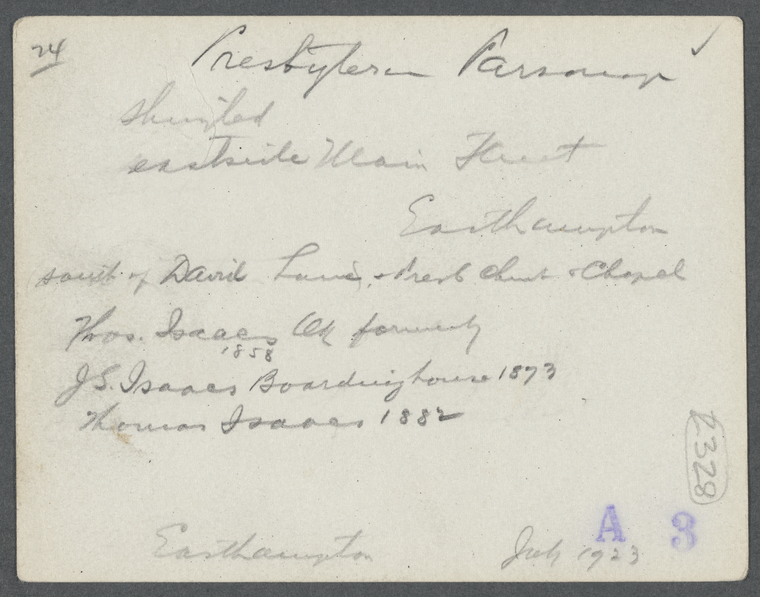 24
Presbyterian Parsonage
shingled
eastside Main Street
Easthampton
south of David &Presb Church &Chapel
Thos. Isaacs formerly
1858
J.S. Isaacs Boardinghouse 1873
Thomas Isaacs 1882
R328
A 3
Easthampton July 1923